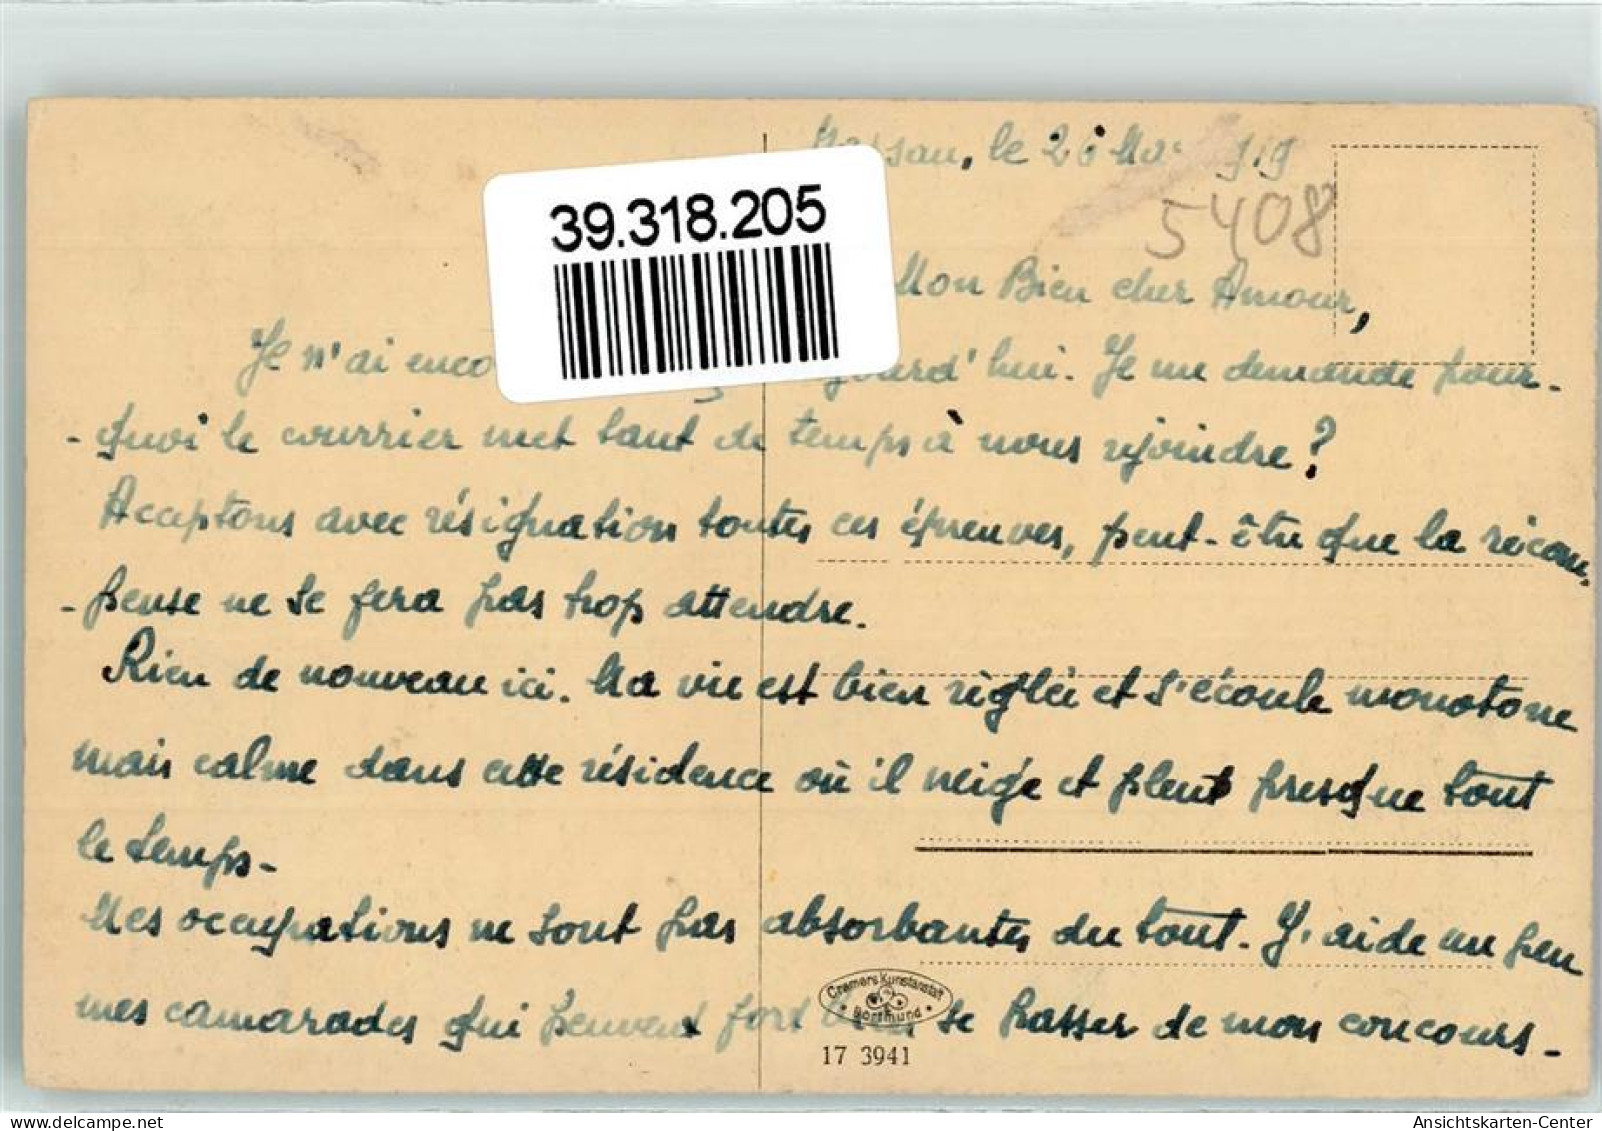 Nassau, le 26 Ma 919
5408
39.318.205
Mon Bien cher Amour,
Je n'ai enco jourd'hui. Je me demande pour-
-quoi le courrier met tant de temps à nous rejoindre?
Acceptons avec résignation toutes ces épreuves, peut-être que la récom.
-pense ne se fera pas trop attendre.
Rien de nouveau ici. Ma vie est bien réglée et s'écoule monotone
mais calme dans cette résidence où il neige et pleut presque tout
le temps-
Mes occupations ne sont pas absorbantes du tout. J'aide un peu
mes camarades qui peuvent fort bien se passer de mon concours-
Cramers Kunstanstalt
Dortmund
17 3941
Ansichtskarten-Center